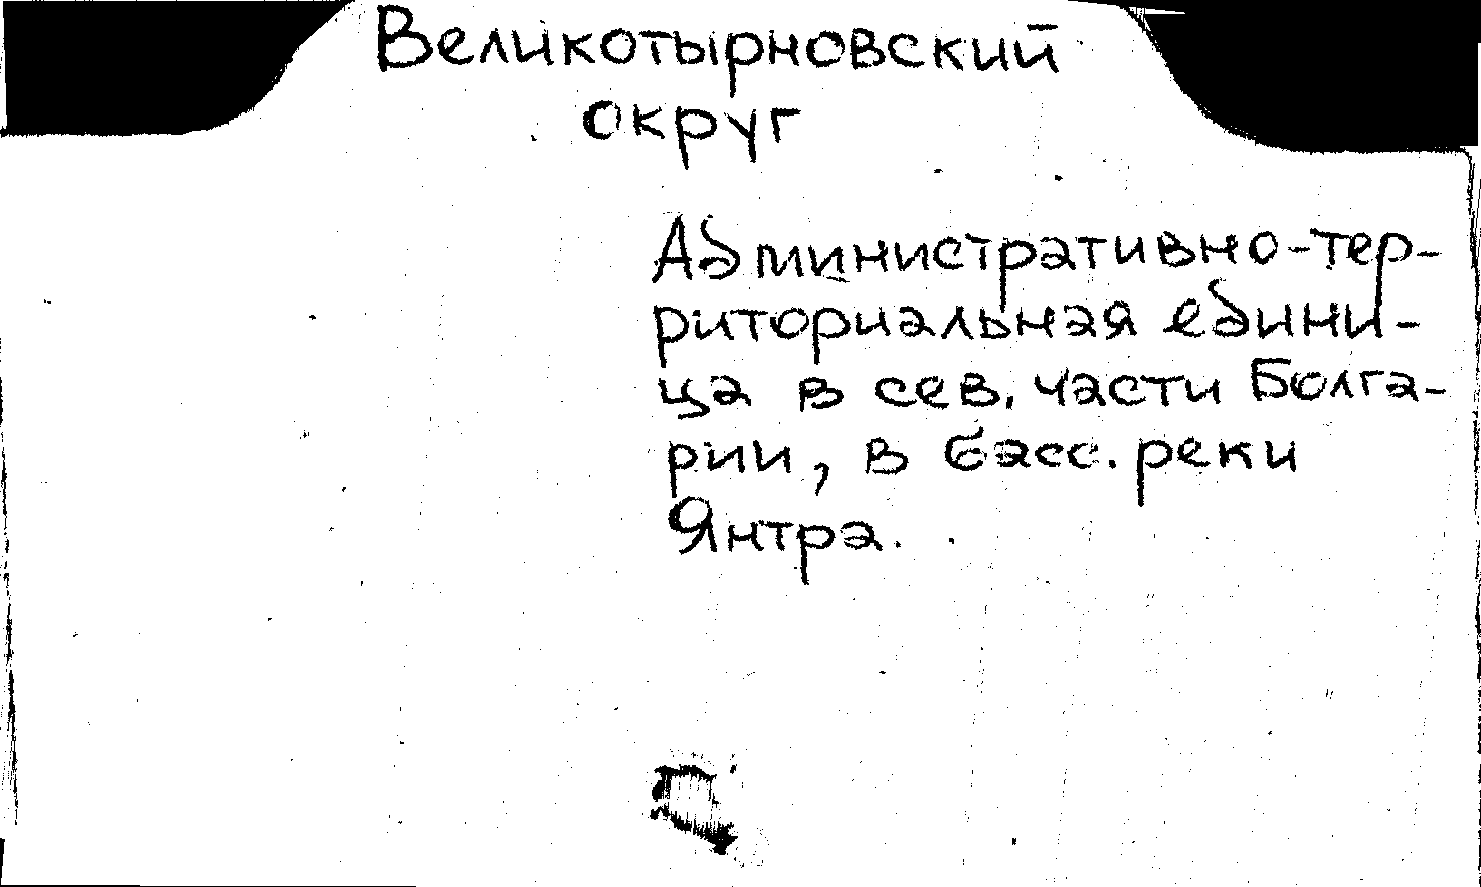 Великотырновский
округ
Административно-тер-
риториальная едини-
ца в сев. части Болга-
рии, в басс. реки
Янтра.